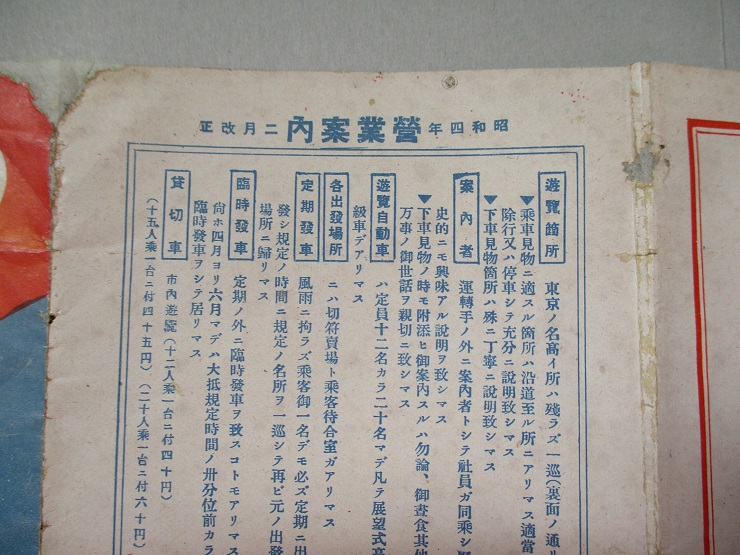 昭和四年 營業案内 二月改正
遊覽箇所 東京ノ名高イ所ハ殘ラズ一巡(裏面ノ通リ
▼乘車見物ニ適スル箇所ハ沿道至ル所ニアリマス適當
除行又ハ停車シテ充分ニ說明致シマス
▼下車見物箇所ハ殊ニ丁寧ニ說明致シマス
案内者 運轉手ノ外ニ案内者トシテ社員ガ同乘シ
史的ニモ興味アル說明ヲ致シマス
▼下車見物ノ時モ附添ヒ御案内スルハ勿論、御晝食其他
万事ノ御世話ヲ親切ニ致シマス
遊覽自動車 ハ定員十二名カラ二十名マデ凡テ展望式高
級車デアリマス
各出發場所 ニハ切符賣場ト乘客待合室ガアリマス
定期發車 風雨ニ拘ラズ乘客御一名デモ必ズ定期ニ出
發シ規定ノ時間ニ規定ノ名所ヲ一巡シテ再ビ元ノ出發
場所ニ歸リマス
臨時發車 定期ノ外ニ臨時發車ヲ致スコトモアリマス
尙ホ四月ヨリ六月マデハ大抵規定時間ノ卅分位前カラ
臨時發車ヲシテ居リマス
貸切車 市内遊覽(十二人乘一台ニ付四十円)
(十五人乘一台ニ付四十五円)(二十人乘一台ニ付六十円)